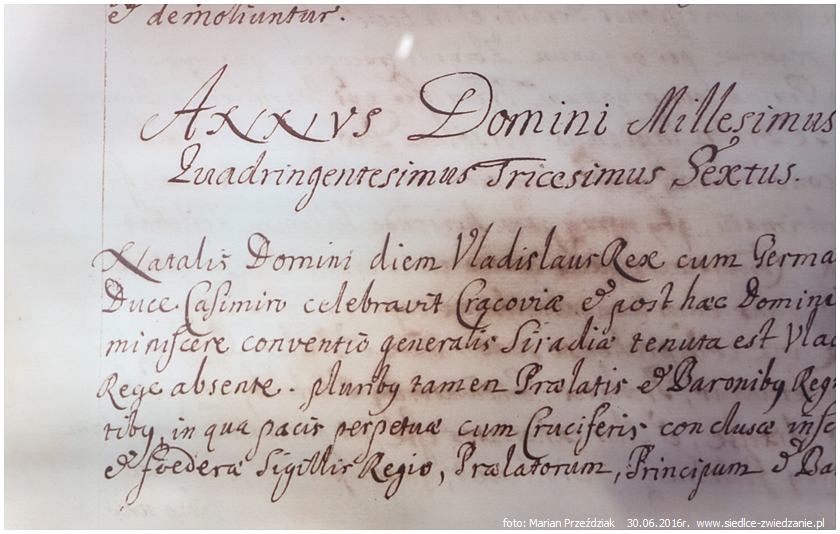 & demoliuntur.
Annus Domini Millesimus
Quadringentesimus Tricesimus Sextus.
Natalis Domini diem Vladislaus Rex cum Germa
Duce Casimiro celebravit Cracoviæ & post hæc Domini
miniscere conventio generalis Siradiæ tenuta est Vlad
Rege absente. pluribꝫ tamen Prælatis & Baronibꝫ Reg
tibꝫ, in qua pacis perpetuæ cum Cruciferis conclusæ insc
& fœderæ Sigillis Regio, Prælatorum, Principum & Ba
foto: Marian Przeździak 30.06.2016r. www.siedlce-zwiedzanie.pl